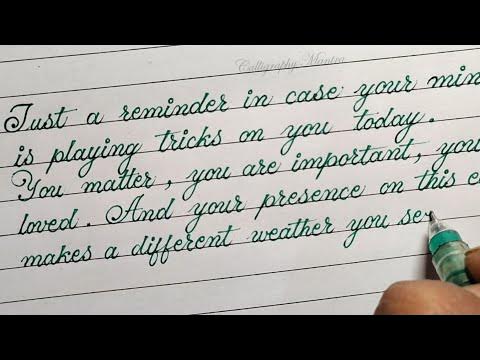 Calligraphy Mantra
Just a reminder in case your min
is playing tricks on you today.
You matter, you are important, you
loved. And your presence on this e
makes a different weather you se